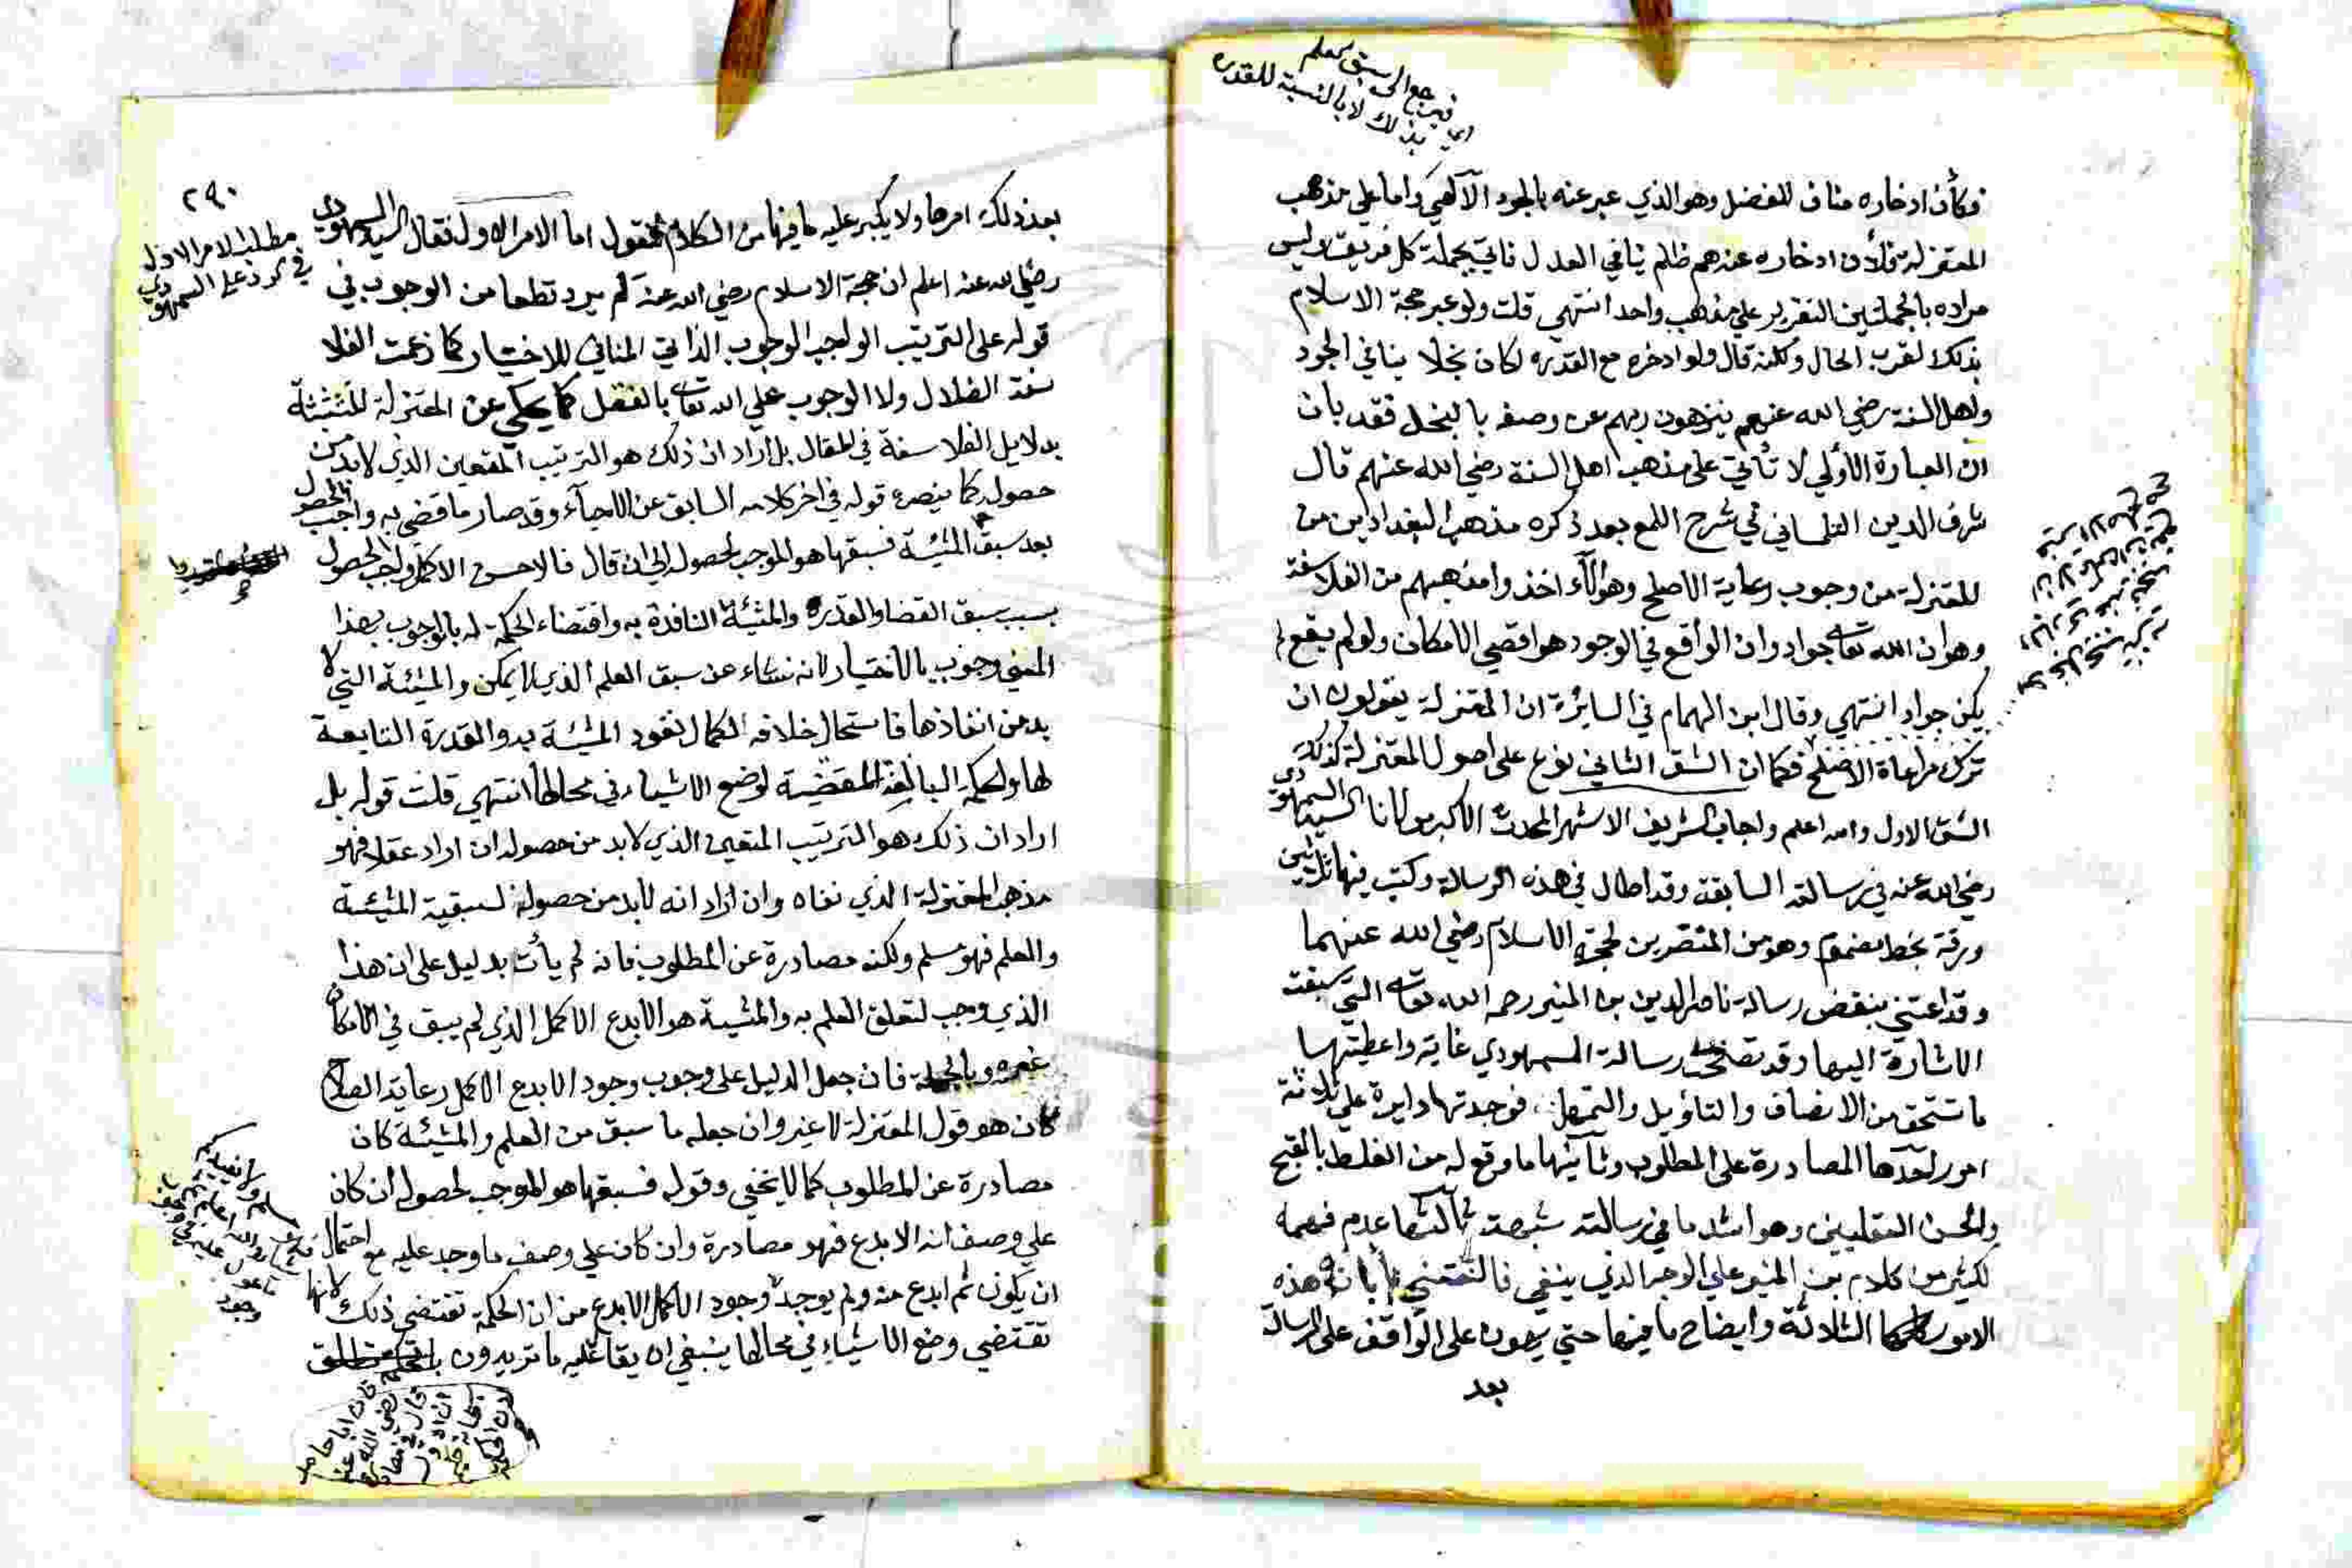 اي فيرجع الى سبق العلم
بذلك لا بالنسبة للقدرة
فكأن ادخاره مناف للفضل وهو الذي عبر عنه بالجود الآلهي واما على مذهب
المعتزلة فلأن ادخاره عندهم ظلم ينافي العدل فاتي بجملة كل فريق وليس
مراده بالجملتين التقرير علي مذهب واحد انتهي قلت ولو عبر حجة الاسلام
بذلك لقرب الحال ولكنه قال ولو ادخره مع القدرة لكان بخلا ينافي الجود
واهل السنة رضي الله عنهم ينزهون ربهم عن وصفه بالبخل فقد بان
ان العبارة الأولي لا تأتي على مذهب اهل السنة رضي الله عنهم قال
شرف الدين التلمساني في شرح اللمع بعد ذكره مذهب البغداديين من
المعتزلة من وجوب رعاية الاصلح وهؤلآء اخذوا مذهبهم من الفلاسفة
وهو ان الله تعالى جواد وان الواقع في الوجود هو اقصي الامكان ولو لم يقع لم
يكن جوادا انتهي وقال ابن الهمام في المسايرة ان المعتزلة يقولون ان
ترك مراعاة الاصلح فكما ان الشق الثاني نوع على اصول المعتزلة كذلك
الشق الاول والله اعلم واجاب الشريف الاشهر المحدث الاكبر مولانا السيد السمهودي
رضي الله عنه في رسالته السابقة وقد اطال في هذه الرسالة وكتب فيها ثلاثين
ورقة بخط مضموم وهو من المنتصرين لحجة الاسلام رضي الله عنهما
وقد اعتني بنقض رسالة ناصر الدين بن المنير رحمه الله تعالى التي سبقت
الاشارة اليها وقد تصفحت رسالة السمهودي غاية واعطيتها
ما تستحق من الانصاف والتاويل والتمهل فوجدتها دايرة على ثلاثة
امور احدها المصادرة على المطلوب وثانيها ما وقع له من الغلط بالقبح
والحسن العقليين وهو اشد ما في رسالته شبهة ثالثها عدم فهمه
لكثير من كلام بن المنير علي الوجه الذي ينبغي هذه
الامور الثلاثة وايضاح ما فيها حتي يهون على الواقف على الرسالة
بعد
٢٩٠
مطلب الامر الاول
في الرد علي السمهودي
بعد ذلك امرها ولا يكبر عليه ما فيها من الكلام فنقول اما الامر الاول فقال السيد السمهودي
رضي الله عنه اعلم ان حجة الاسلام رضي الله عنه لم يرد قطعا من الوجوب في
قوله على الترتيب الواجب الوجوب الذاتي المنافي للاختيار كما زعمت الفلا
سفة الضلال ولا الوجوب علي الله تعالى بالعقل كما يحكي عن المعتزلة المتشبثة
بدلايل الفلاسفة في المقال بل اراد ان ذلك هو الترتيب المتعين الذي لابد من
حصوله كما ينصه قوله في اخر كلامه السابق عن الاحيآء وقد صار ما قضي به واجب الحصول
بعد سبق المشيئة فسبقها هو الموجب لحصوله الى ان قال فالاحسن الاكمل واجب الحصول
بسبب سبق القضا والقدرة والمشيئة النافذة به واقتضاء الحكمة له بالوجوب بهذا
المعني وجوب بالاختيار لانه نشاء عن سبق العلم الذي لا يمكن والمشيئة التي لا
بد من انفاذها فاستحال خلافه لكمال نفوذ المشيئة به والقدرة التابعة
لها والحكمة البالغة المقتضية لوضع الاشياء في محالها انتهي قلت قوله بل
اراد ان ذلك هو الترتيب المتعين الذي لابد من حصوله ان اراد عقلا فهو
مذهب المعتزلة الذي نفاه وان اراد انه لابد من حصوله لسبقية المشيئة
والعلم فهو مسلم ولكنه مصادرة عن المطلوب فانه لم يأت بدليل على ان هذا
الذي وجب لتعلق العلم به والمشيئة هو الابدع الاكمل الذي لم يبق في الامكان
غيره وبالجملة فان جعل الدليل على وجوب وجود الابدع الاكمل رعاية الصلاح
كان هو قول المعتزلة لا غير وان جعله ما سبق من العلم والمشيئة كان
مصادرة عن المطلوب كما لا يخفي وقوله فسبقها هو الموجب لحصوله ان كان
علي وصف انه الابدع فهو مصادرة وان كان علي وصف ما وجد عليه مع احتمال
ان يكون ثم ابدع منه ولم يوجد وجود الاكمل الابدع من ان الحكمة تقتضي ذلك لانها
تقتضي وضع الاشياء في محالها ينبغي ان يقال عليه ما تريدون